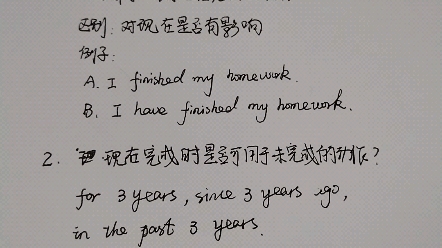 区别: 对现在是否有影响
例子:
A. I finished my homework.
B. I have finished my homework.
2. 现在完成时是否可用于未完成的动作?
for 3 years, since 3 years ago,
in the past 3 years.